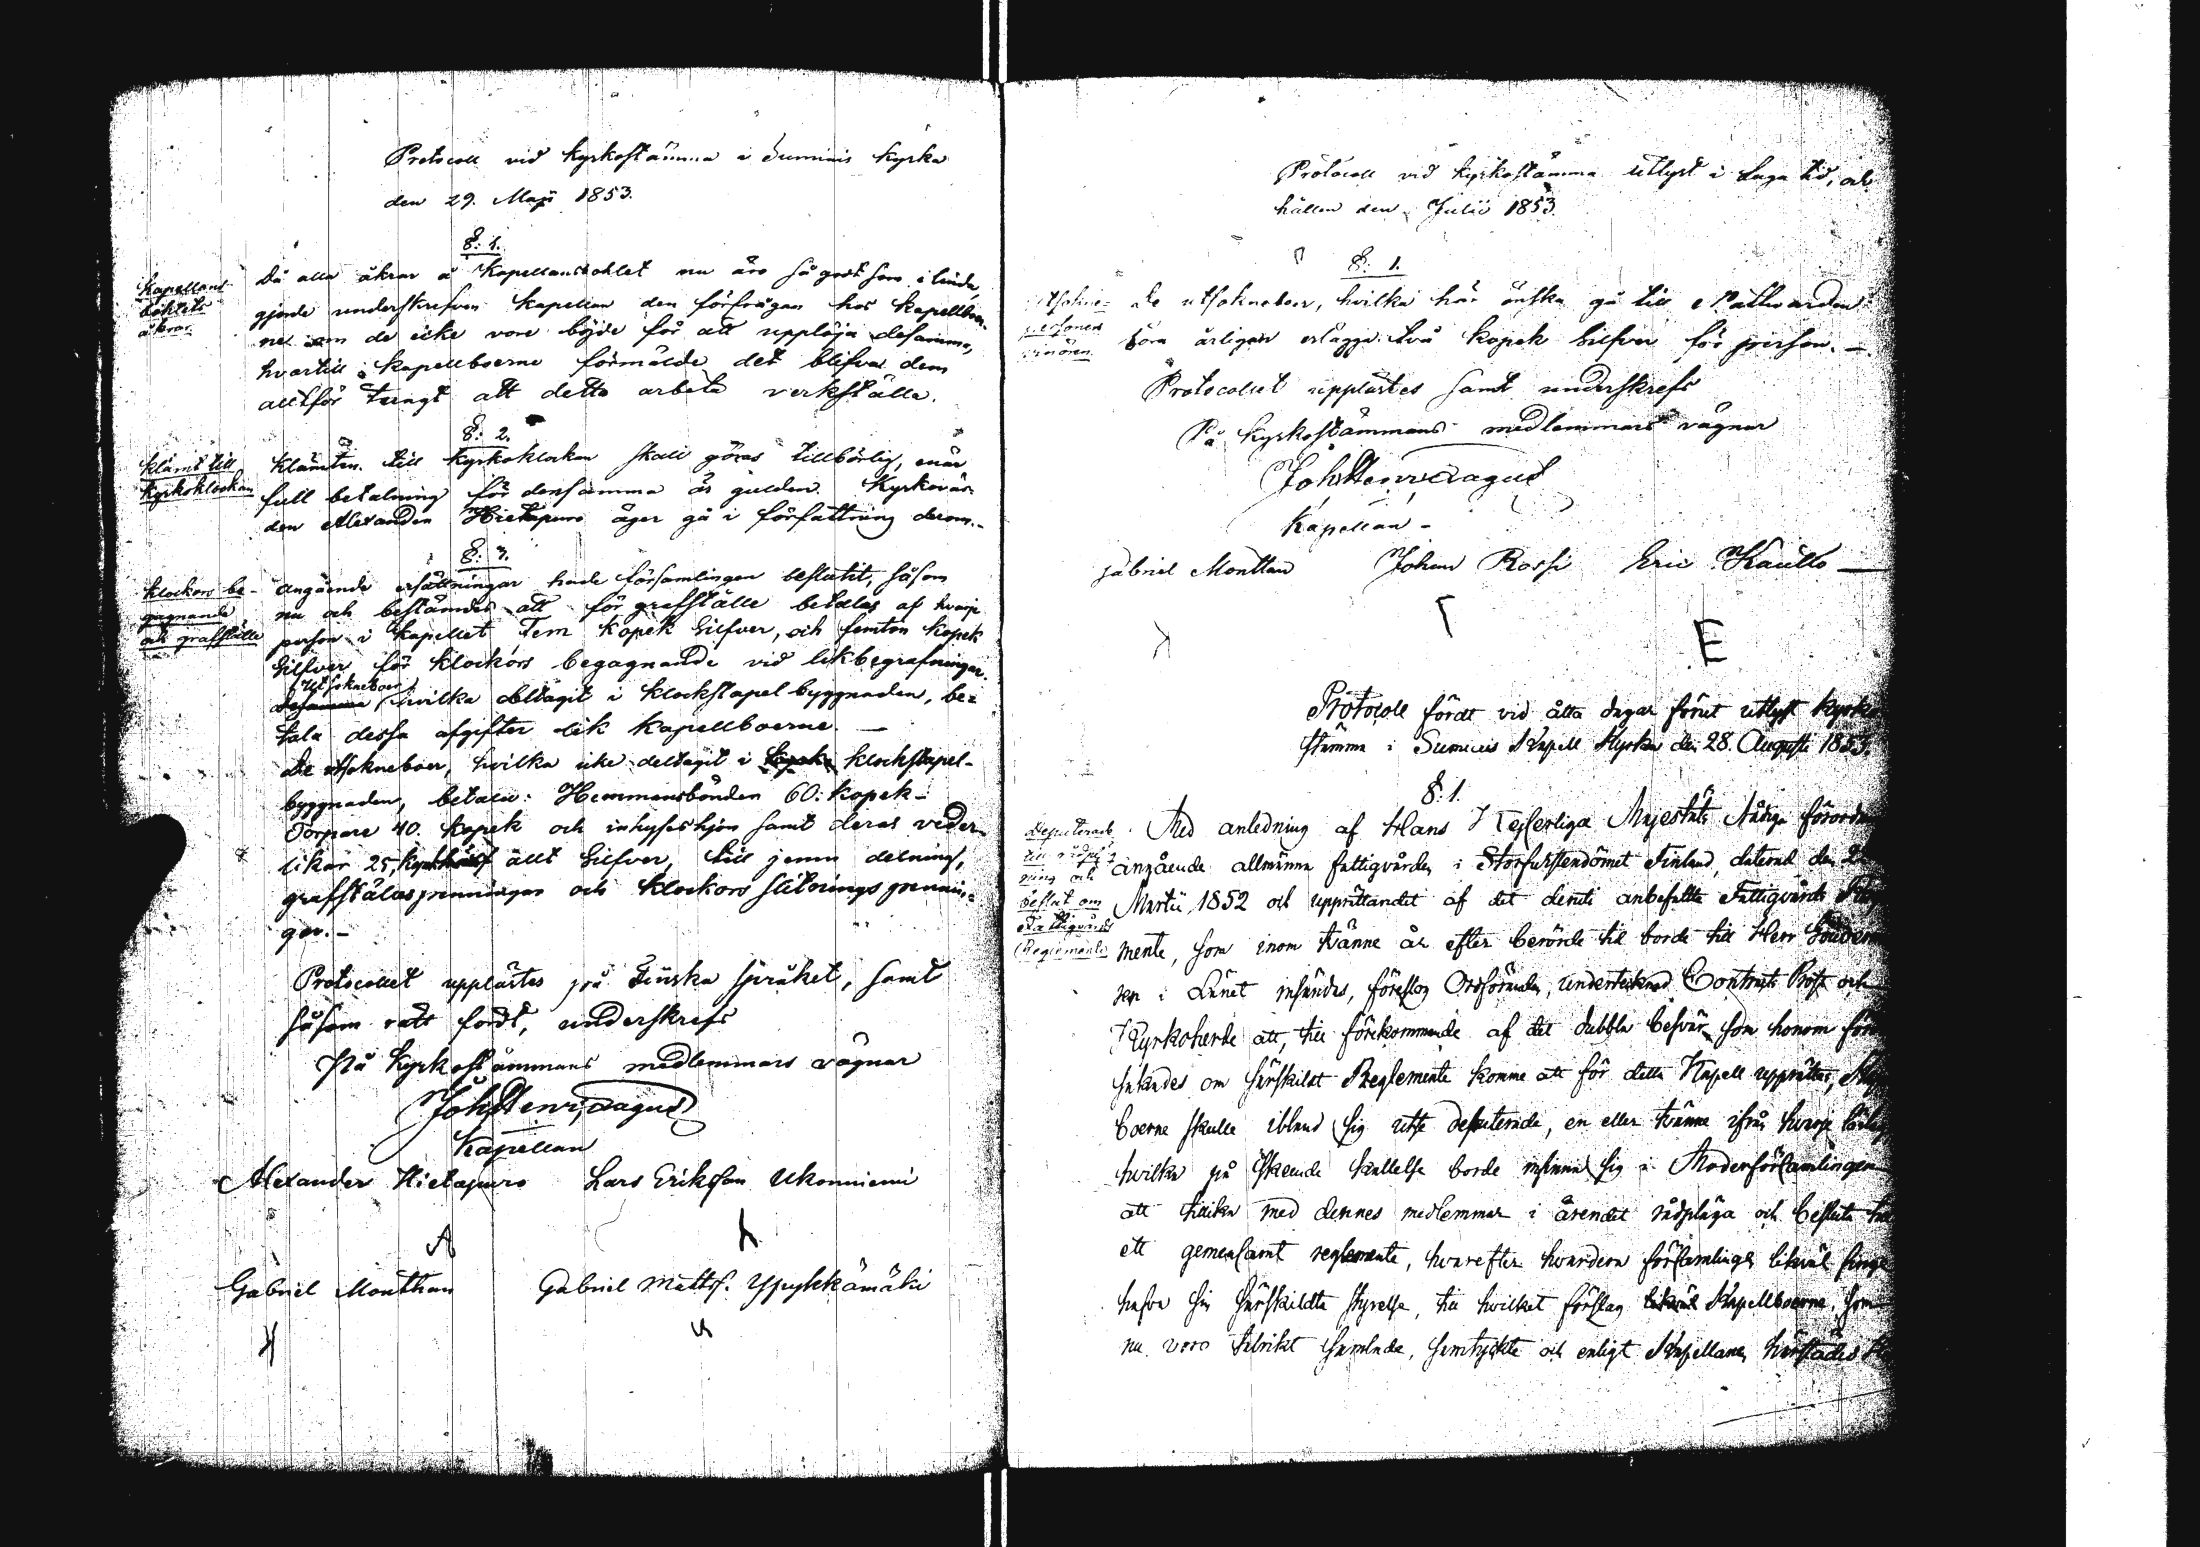 Protocoll vid kyrkostämma i Suminis kyrka
den 29. Maji 1853.
§: 1.
Kapellans-
bohlets
åkrar.
Då alla åkrar å Kapellansbohlet nu äro så godt som i linda,
gjorde underskrefven kapellan den förfrågan hos kapellboer-
ne om de icke vore böjde för att upplöja desamma,
hvartill kapellboerne förmälde det blifva dem
alltför tungt att detta arbete verkställa.
§: 2.
klämt till
kyrkoklockan
Klämten till kyrkoklockan skall göras tillbörlig, enär
full betalning för densamma är gulden. Kyrkovär-
den Alexander Hietapuro äger gå i författning derom.-
§: 3.
klockors be-
gagnande
och grafställe
Angående ersättningar hade församlingen beslutit, såsom
nu och bestämdes att för grafställe betalas af hvarje
person i kapellet Fem kopek Silfver, och femton kopek
Silfver för klockors begagnande vid likbegrafningar.
Utsokneboer
hvilka deltagit i klockstapel byggnaden, be-
tala dessa afgifter lik kapellboerne. —
De utsokneboer, hvilka icke deltagit i klockstapel-
byggnaden, betala: Hemmansbönder 60. kopek-
Torpare 40. kopek och inhyseshjon samt deras veder-
likar 25, allt Silfver, till jemn delning,
grafställespenningar och klockors slitnings pennin-
gar.-
Protocollet upplästes på Finska språket, samt
såsom rätt fördt, underskrefs
På kyrkostämmans medlemmars vägnar
Joh. Henr. Dagus
Kapellan
Alexander Hietapuro Lars Eriksson Ukonniemi
Gabriel Monthan Gabriel Matts.
Protocoll vid kyrkostämma utlyst i laga tid, och
hållen den Julii 1853.
§: 1.
De utsokneboer, hvilka här önska gå till Nattvarden
böra årligen erlägga två kopek Silfver för person. —
Protocollet upplästes samt underskrefs
På kyrkostämmans medlemmars vägnar
Joh. Henr. Dagus
Kapellan-
Gabriel Monthan Johan Rossi Eric Kautto
E
Protocoll fördt vid åtta dagar förut utlyst kyrko
stämma i Suminis Kapell Kyrka den 28. Augusti 1853.
§: 1.
Deputerade
ning och
beslut om
Fattigvårds
Reglemente
Med anledning af Hans Kejserliga Majestäts Nådiga förordn
angående allmänna fattigvården i Storfurstendömet Finland, daterad den
Martii 1852 och upprättandet af det deruti anbefallta Fattigvårds
mente, som inom tvänne år efter berörde tid borde till Herr Guvern
ren i Länet insändas, föreslog Ordföranden, undertecknad Contracts Prost och
Kyrkoherde att, till förekommande af det dubbla besvär som honom
om särskildt Reglemente komme att för detta Kapell upprättas,
boerne skulle ibland sig utse deputerade, en eller tvänne ifrån hvarje
hvilka på skeende kallelse borde infinna sig i Moderförsamlingen
att tillika med dennes medlemmar i ärendet rådpläga och besluta
ett gemensamt reglemente, hvarefter hvardera församlingen likväl finge
hafva sin särskildta styrelse, till hvilket förslag Kapellboerne, som
nu voro talrikt samlade, samtyckte och enligt Kapellanen härstädes